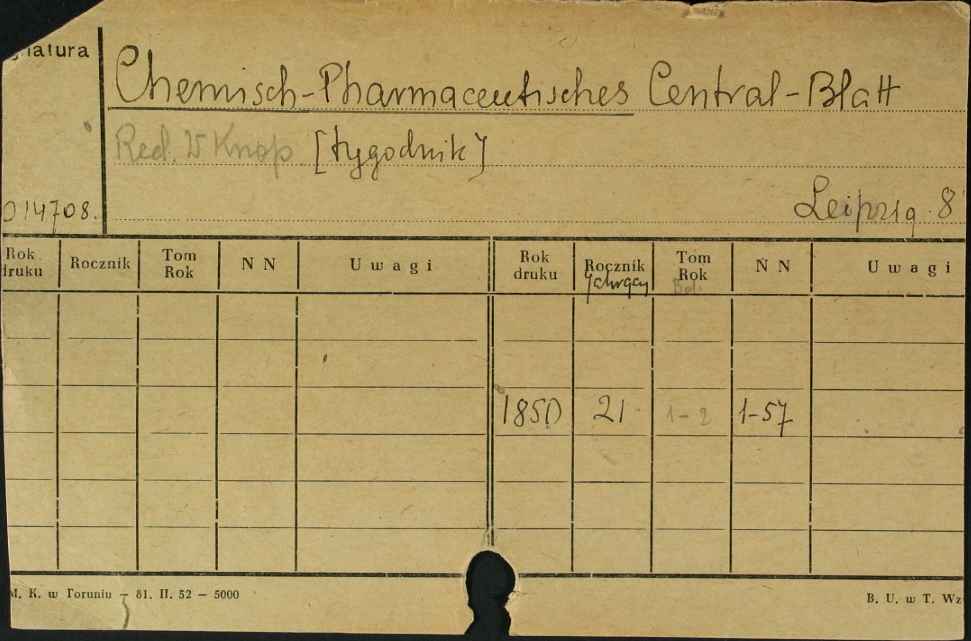 natura
Chemisch-Pharmaceutisches Central-Blatt
Red. W Knop [tygodnik]
014708.
Leipzig 8
Rok druku Rocznik Tom Rok N N Uwagi Rok druku Rocznik Jahrgan Tom Rok Bd. N N Uwagi
1850 21 1-2 1-57
M. K. w Toruniu — 81. II. 52 — 5000
B. U. w T. Wz